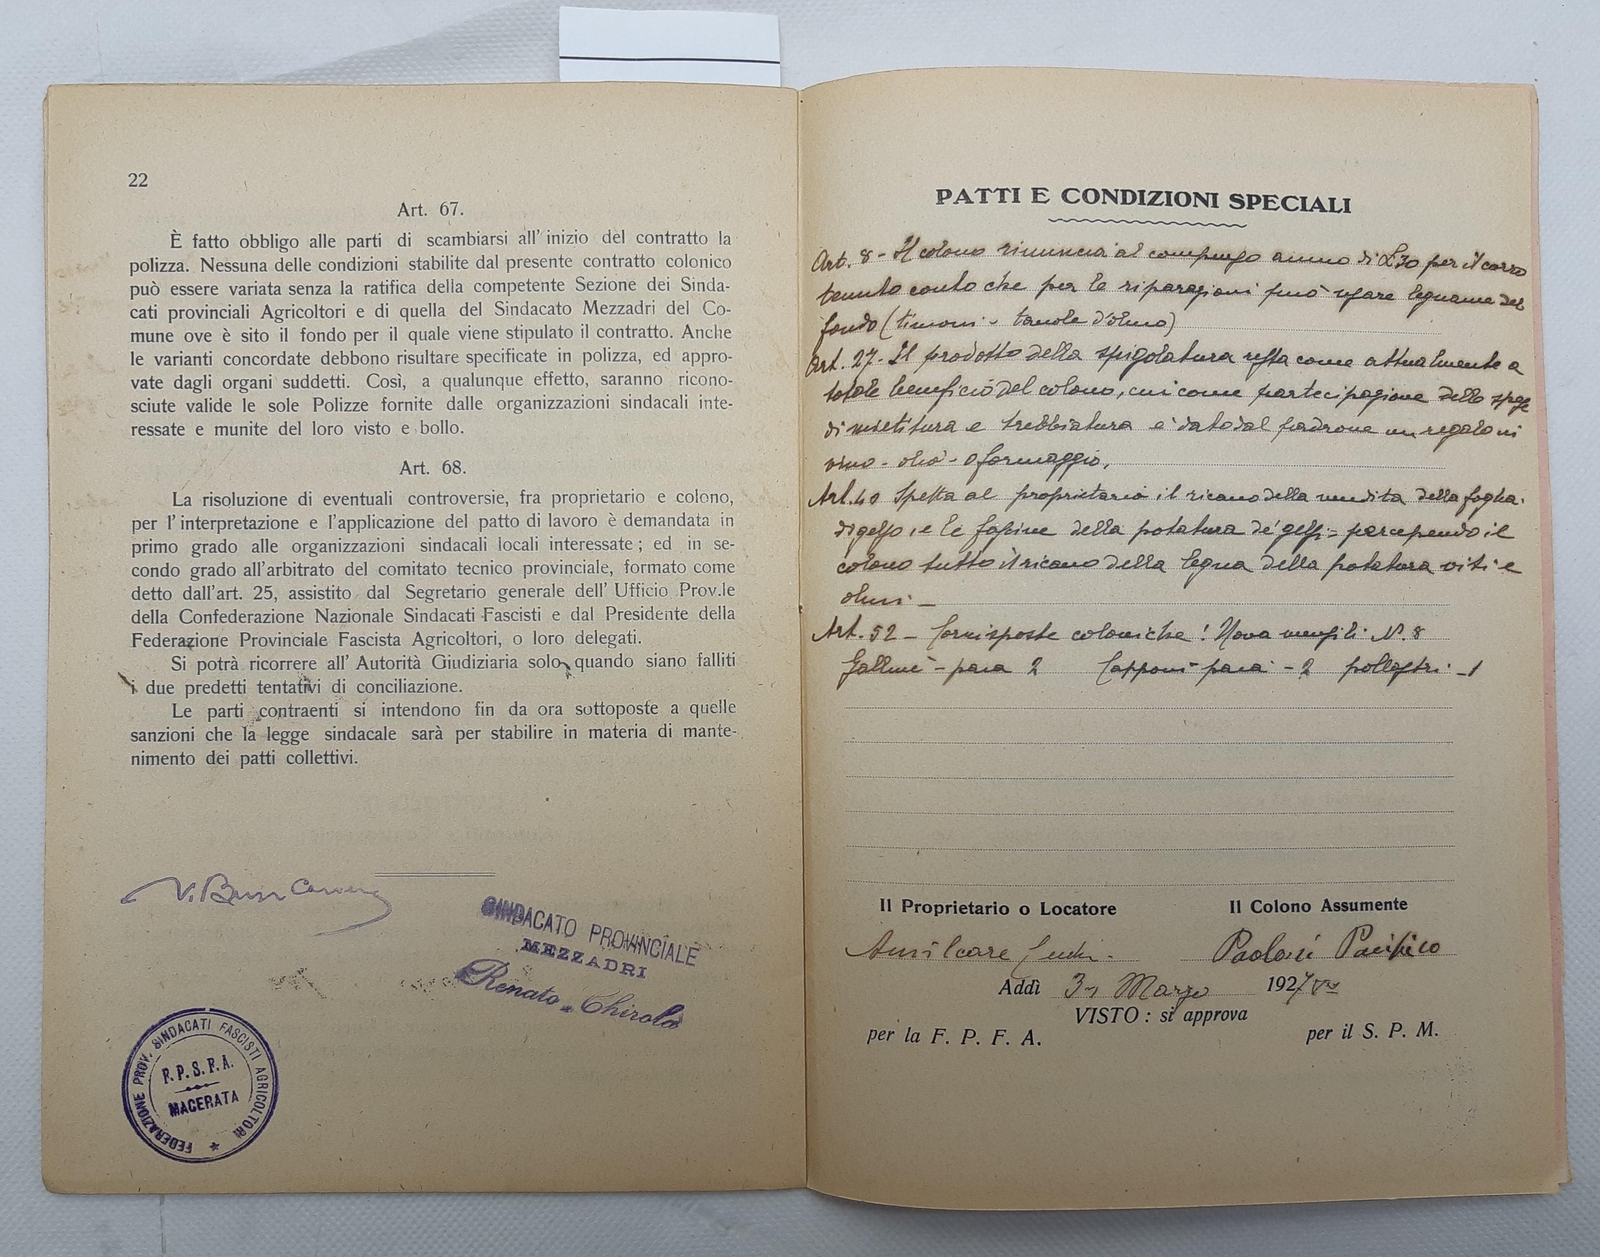 22
Art. 67.
È fatto obbligo alle parti di scambiarsi all'inizio del contratto la
polizza. Nessuna delle condizioni stabilite dal presente contratto colonico
può essere variata senza la ratifica della competente Sezione dei Sinda-
cati provinciali Agricoltori e di quella del Sindacato Mezzadri del Co-
mune ove è sito il fondo per il quale viene stipulato il contratto. Anche
le varianti concordate debbono risultare specificate in polizza, ed appro-
vate dagli organi suddetti. Così, a qualunque effetto, saranno ricono-
sciute valide le sole Polizze fornite dalle organizzazioni sindacali inte-
ressate e munite del loro visto e bollo.
Art. 68.
La risoluzione di eventuali controversie, fra proprietario e colono,
per l'interpretazione e l'applicazione del patto di lavoro è demandata in
primo grado alle organizzazioni sindacali locali interessate; ed in se-
condo grado all'arbitrato del comitato tecnico provinciale, formato come
detto dall'art. 25, assistito dal Segretario generale dell'Ufficio Prov.le
della Confederazione Nazionale Sindacati Fascisti e dal Presidente della
Federazione Provinciale Fascista Agricoltori, o loro delegati.
Si potrà ricorrere all'Autorità Giudiziaria solo quando siano falliti
i due predetti tentativi di conciliazione.
Le parti contraenti si intendono fin da ora sottoposte a quelle
sanzioni che la legge sindacale sarà per stabilire in materia di mante-
nimento dei patti collettivi.
SINDACATO PROVINCIALE
MEZZADRI
Renato Chirola
FEDERAZIONE PROV. SINDACATI FASCISTI AGRICOLTORI
F.P.S.F.A.
MACERATA
PATTI E CONDIZIONI SPECIALI
Art. 8 - Il colono rinuncia al compenso annuo di £30 per il carro
tenuto conto che per le riparazioni può usare legname del
fondo (timoni - tavole d'olmo)
Art. 27 - Il prodotto della spigolatura resta come attualmente a
totale beneficio del colono, cui come partecipazione delle spese
di mietitura e trebbiatura è dato dal padrone un regalo in
vino - olio - o formaggio.
Art. 40 Spetta al proprietario il ricavo della vendita della foglia
di gelso, e le fascine della potatura de' gelsi - percependo il
colono tutto il ricavo della legna della potatura viti e
olmi -
Art. 52 - Corrisposte coloniche: Uova mensili N. 8
Galline - paia 2 Capponi paia - 2 pollastri - 1
Il Proprietario o Locatore
Il Colono Assumente
Amilcare
Paolari Pacifico
Addì 31 Marzo 1927
VISTO: si approva
per la F. P. F. A.
per il S. P. M.